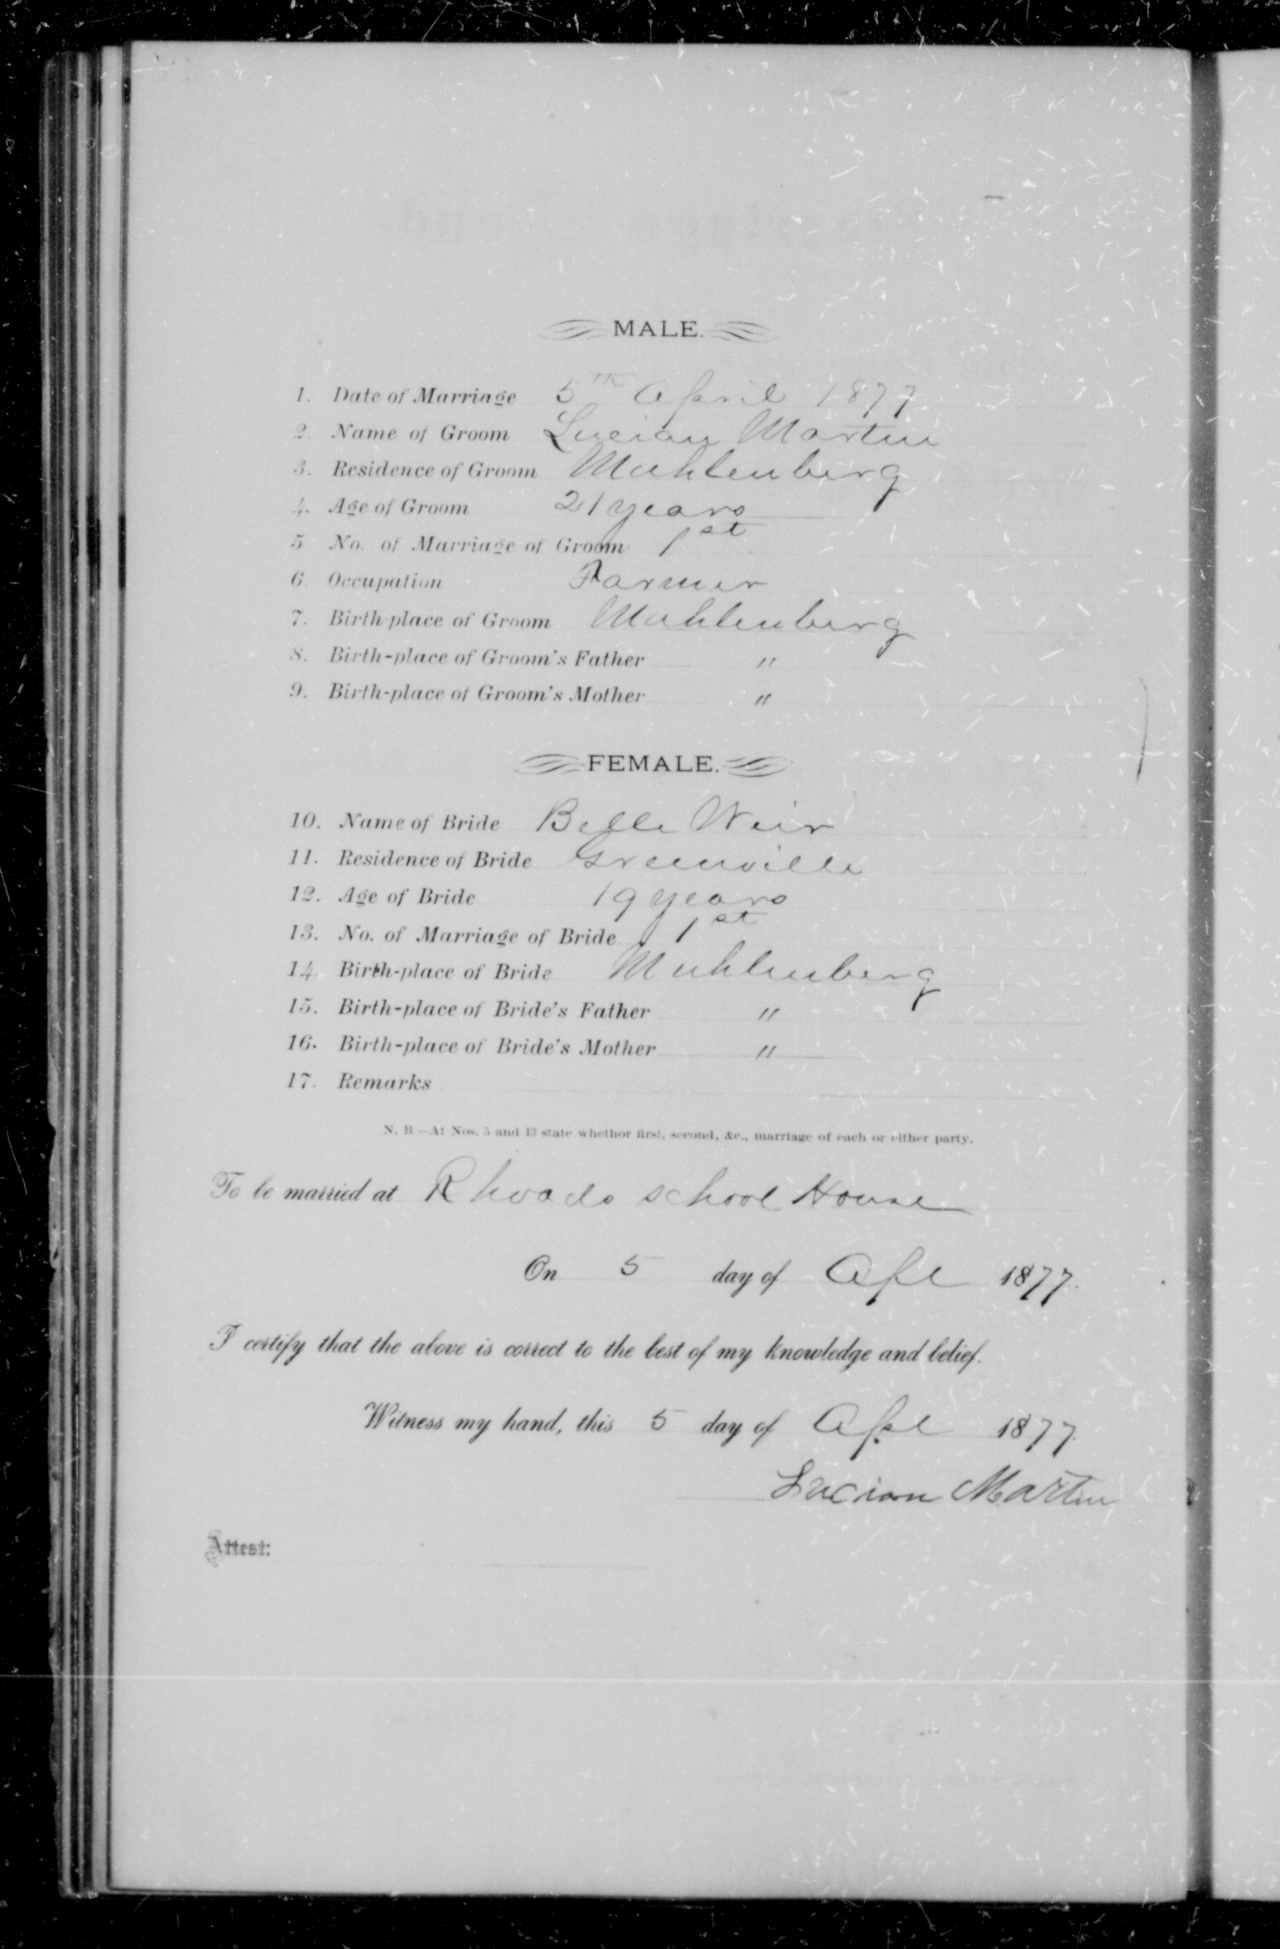 MALE.
1. Date of Marriage 5th April 1877
2. Name of Groom Lucian Martin
3. Residence of Groom Muhlenberg
4. Age of Groom 21 years
5 No. of Marriage of Groom 1st
6. Occupation Farmer
7. Birth-place of Groom Muhlenberg
8. Birth-place of Groom's Father "
9. Birth-place of Groom's Mother "
FEMALE.
10. Name of Bride Belle Weir
11. Residence of Bride Greenville
12. Age of Bride 19 years
13. No. of Marriage of Bride 1st
14 Birth-place of Bride Muhlenberg
15. Birth-place of Bride's Father "
16. Birth-place of Bride's Mother "
17. Remarks
N. B.—At Nos. 5 and 13 state whethor first, second, &c., marriage of each or either party.
To be married at Rhoads school House
On 5 day of Apl 1877.
I certify that the above is correct to the best of my knowledge and belief.
Witness my hand, this 5 day of Apl 1877.
Lucian Martin
Attest: